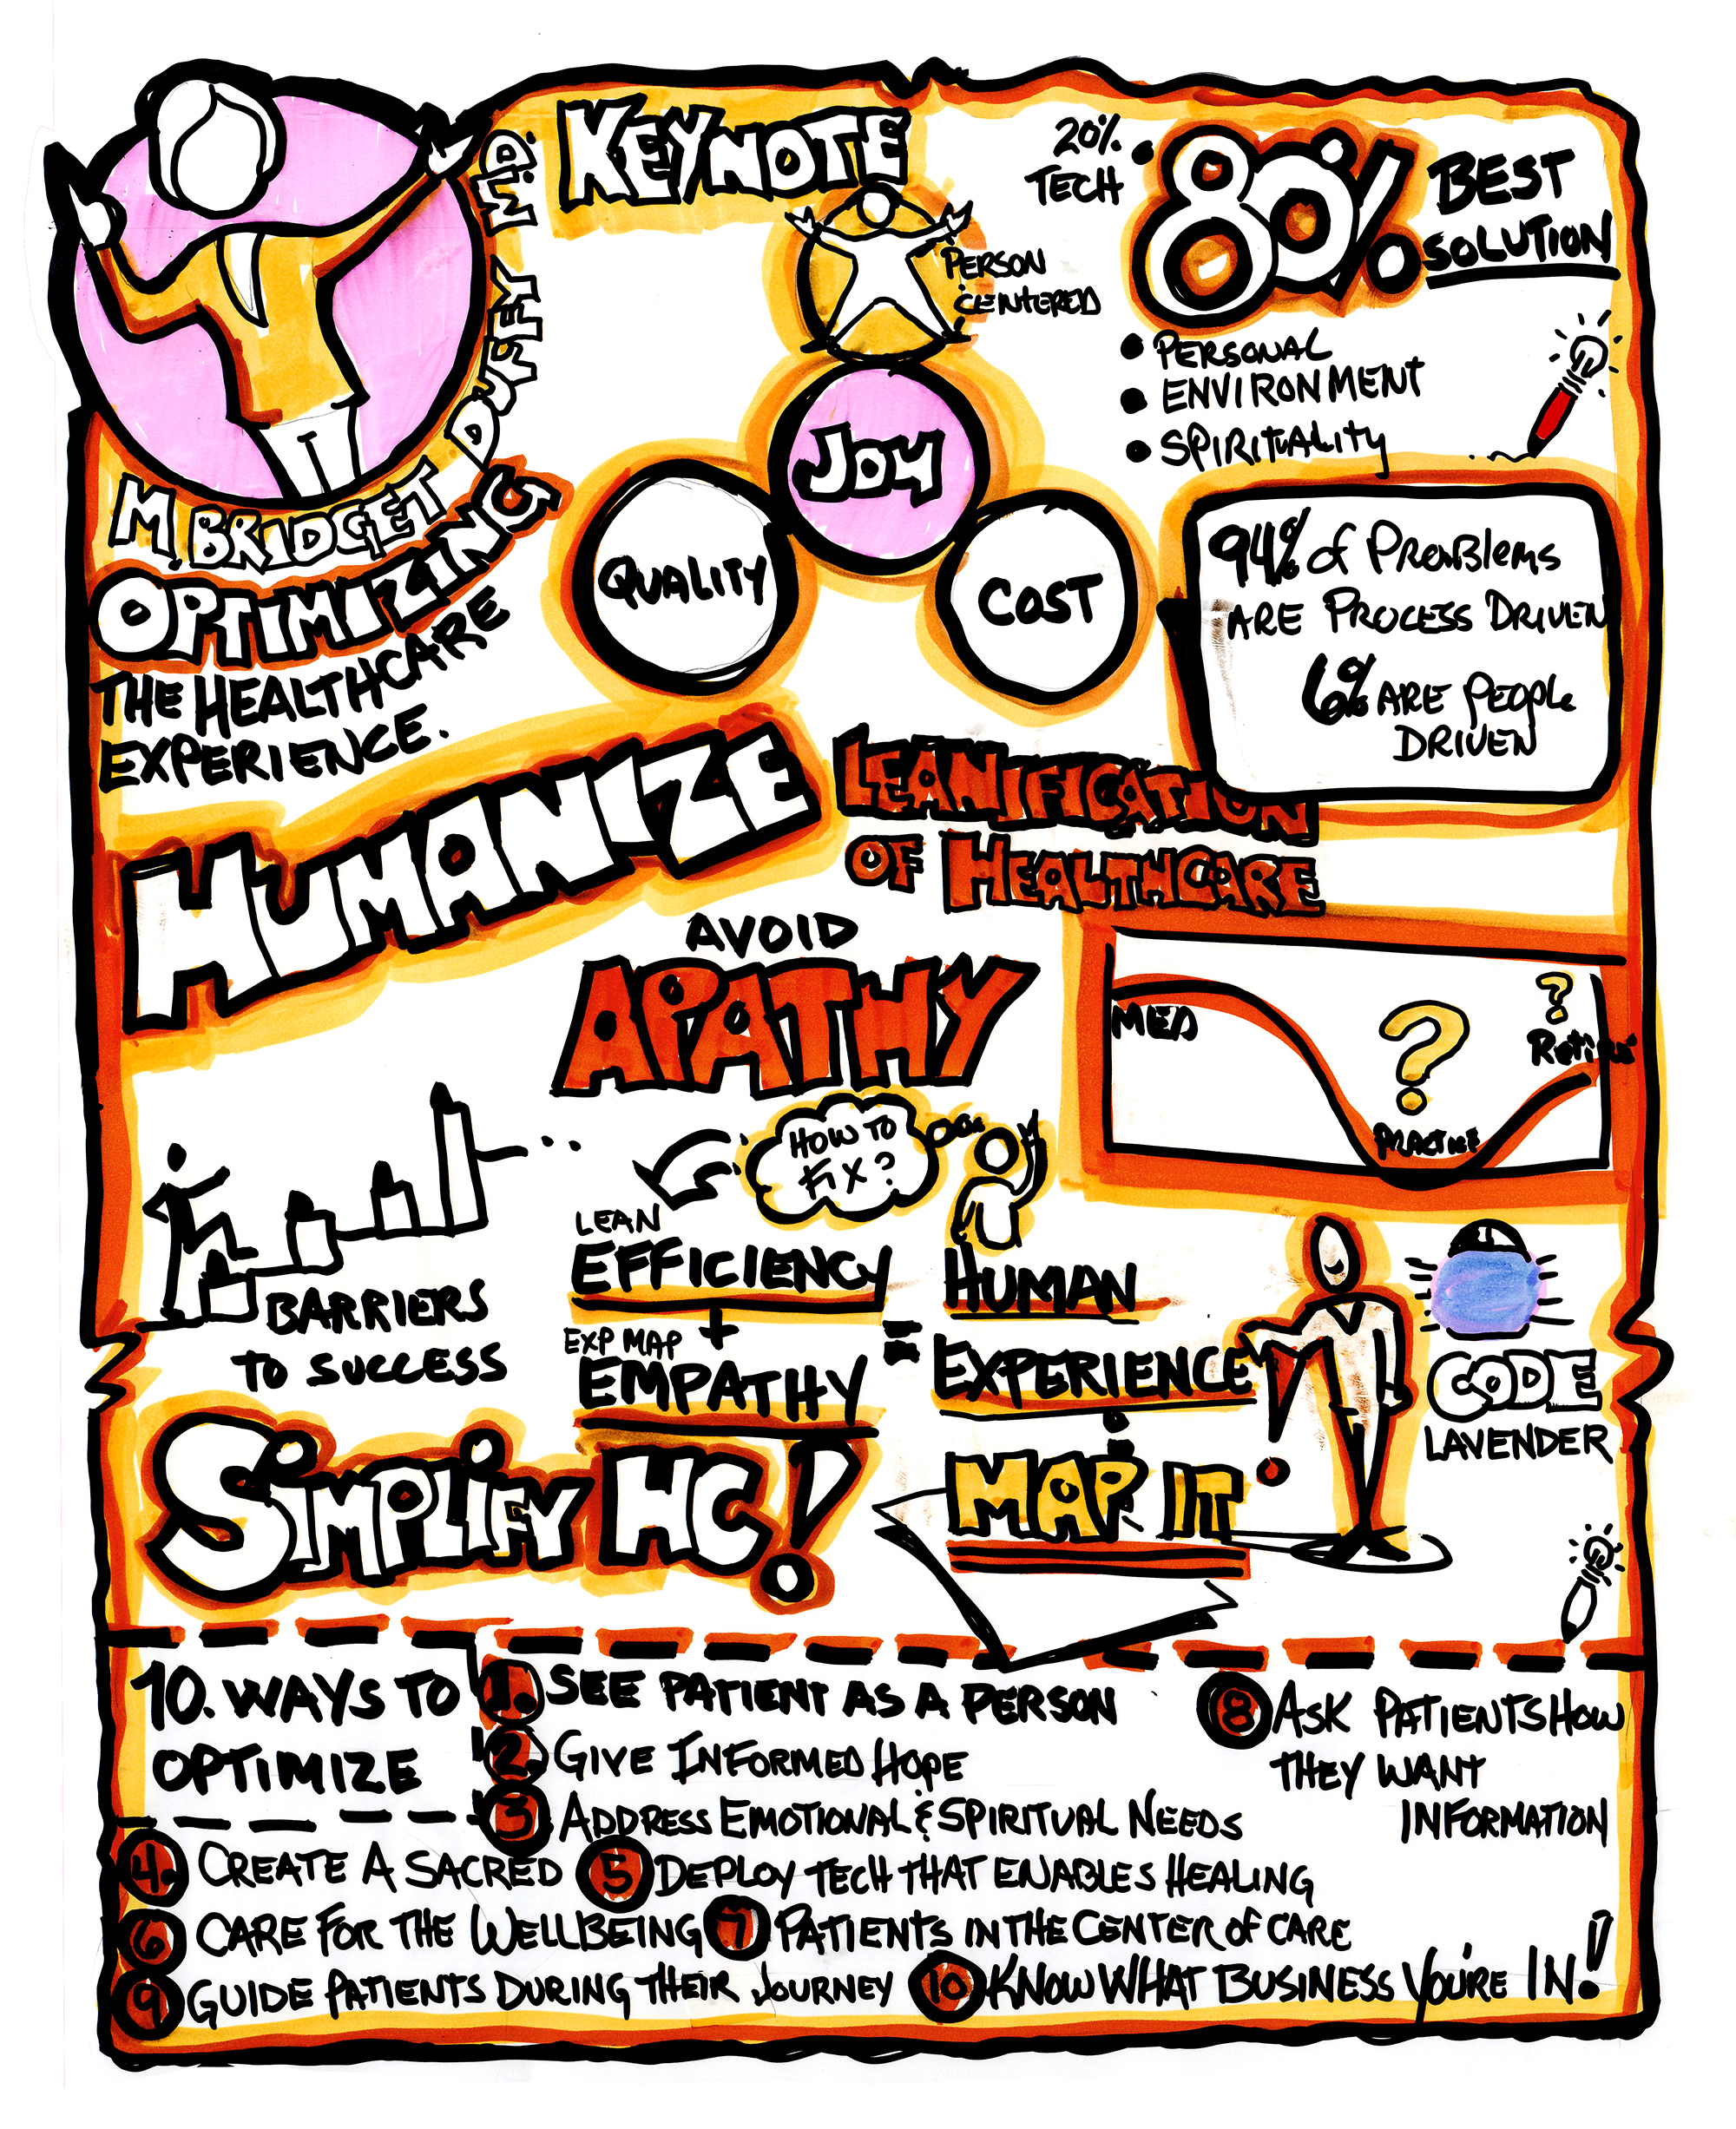 KEYNOTE
M. BRIDGET DUFFY M.D.
OPTIMIZING
THE HEALTHCARE
EXPERIENCE.
PERSON
CENTERED
JOY
QUALITY
COST
20%
TECH
80%
BEST
SOLUTION
• PERSONAL
• ENVIRONMENT
• SPIRITUALITY
94% of PROBlEMS
ARE PROCESS DRIVEN
6% ARE PEOPLE
DRIVEN
HUMANIZE
LEANIFICATION
OF HEALTHCARE
AVOID
APATHY
MED
?
PRACTICE
?
BARRIERS
TO SUCCESS
HOW TO
FIX?
LEAN
EFFICIENCY
+
EXP MAP
EMPATHY
=
HUMAN
EXPERIENCE
MAP IT
CODE
LAVENDER
SIMPLIFY HC!
10. WAYS TO
OPTIMIZE
1. SEE PATIENT AS A PERSON
2. GIVE INFORMED HOPE
3 ADDRESS EMOTIONAL & SPIRITUAL NEEDS
4. CREATE A SACRED
5 DEPLOY TECH THAT ENABLES HEALING
6 CARE FOR THE WELLBEING
7 PATIENTS IN THE CENTER OF CARE
8 ASK PATIENTS HOW
THEY WANT
INFORMATION
9 GUIDE PATIENTS DURING THEIR JOURNEY
10 KNOW WHAT BUSINESS YOU'RE IN!